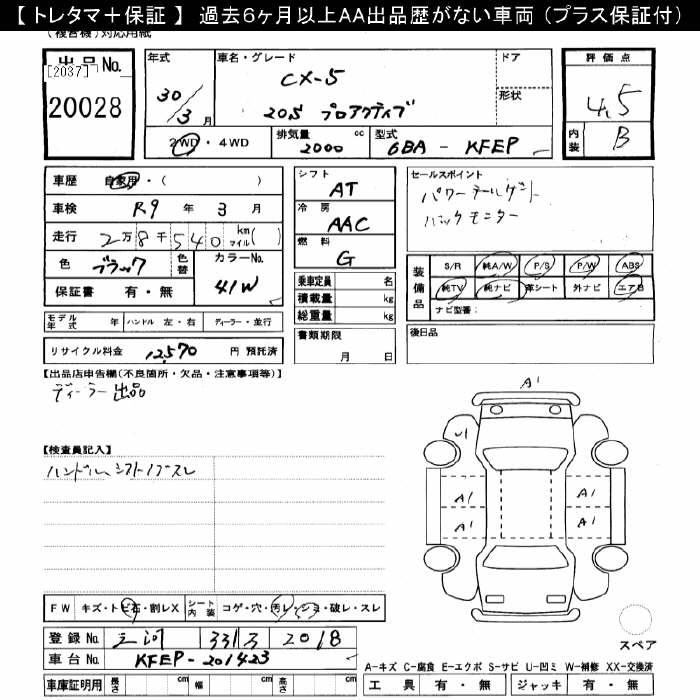 【 トレタマ＋保証 】 過去６ヶ月以上ＡＡ出品歴がない車両 （プラス保証付）
(複省機)対応用紙
出品No. [2037] 20028
年式 30/3月
車名・グレード CX-5 20S プロアクティブ
ドア
形状
評価点 4.5
内装 B
2WD・4WD
排気量 2000 cc
型式 6BA - KFEP
車歴 自家用・( )
車検 R9 年 3 月
走行 2万8千540 km マイル( )
色 ブラック 色替
カラーNo. 41W
保証書 有・無
モデル年式 年 ハンドル 左・右 ディーラー・並行
リサイクル料金 12,570 円 預託済
シフト AT
冷房 AAC
燃料 G
乗車定員 名
積載量 kg
総重量 kg
書類期限
月 日
セールスポイント
パワーテールゲート
バックモニター
装備品 S/R 純A/W P/S P/W ABS
純TV 純ナビ 革シート 外ナビ エアB
ナビ型番:
後日品
【出品店申告欄(不良箇所・欠品・注意事項等)】
ディーラー出品
【検査員記入】
ハンドル、シフトノブスレ
A1
U1
A1 A1
A1 A1
FW キズ・トビ石・割レX シート内装 コゲ・穴・汚レ・シミ・破レ・スレ
登録No. 三河 331 ス 2018
車台No. KFEP-201423
車庫証明用 長さ cm 幅 cm 高さ cm
スペア
A-キズ C-腐食 E-エクボ S-サビ U-凹ミ W-補修 XX-交換済
工具 有・無 ジャッキ 有・無